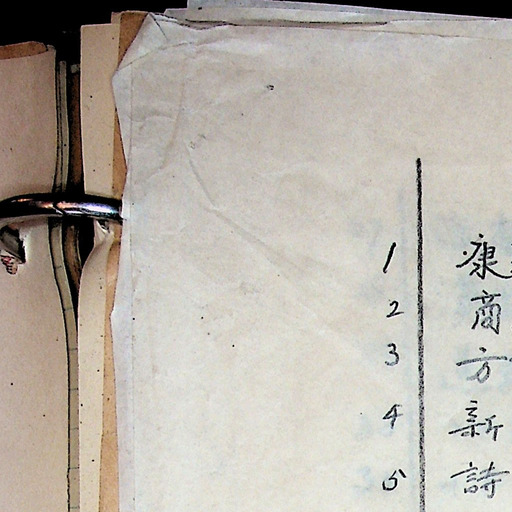 1 康
2 商
3 方
4 新
5 詩